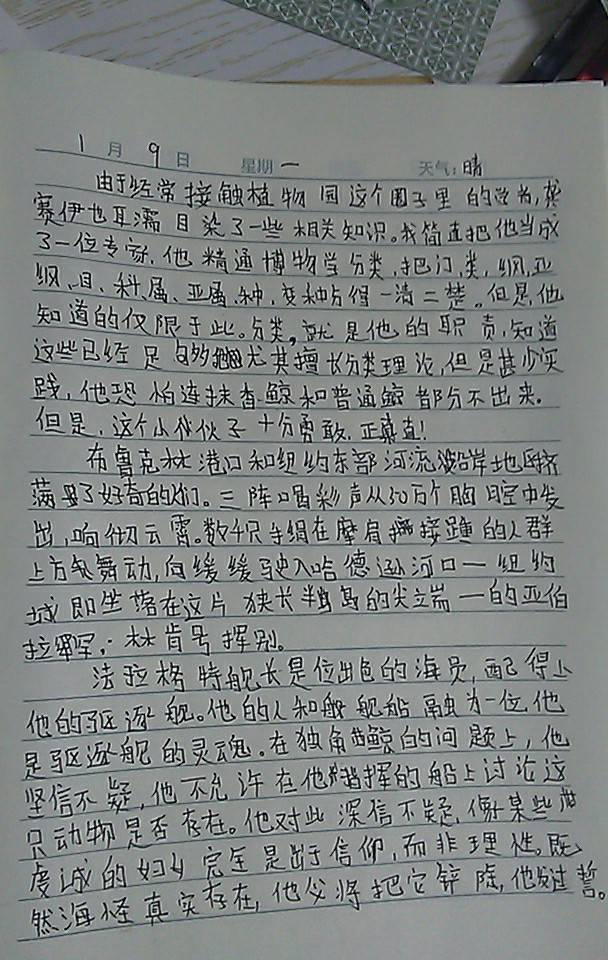 1月9日 星期一 天气:晴
由于经常接触植物园这个圈子里的学者,龚
赛伊也耳濡目染了一些相关知识。我简直把他当成
了一位专家,他精通博物学分类,把门、类、纲、亚
纲、目、科、属、亚属、种、变种分得一清二楚。但是,他
知道的仅限于此。分类,就是他的职责,知道
这些已经足够 尤其擅长分类理论,但是甚少实
践,他恐怕连抹香鲸和普通鲸都分不出来。
但是,这个小伙伙子十分勇敢,正直!
布鲁克林港口和纽约东部河流沿岸地区挤
满了好奇的人们。三阵喝彩声从50万个胸腔中发
出,响彻云霄。数千只手绢在摩肩接踵的人群
上方舞动,向缓缓驶入哈德逊河口—纽约
城即坐落在这片狭长半岛的尖端—的亚伯
拉罕·林肯号挥别。
法拉格特舰长是位出色的海员,配得上
他的驱逐舰。他的人和舰船融为一位,他
是驱逐舰的灵魂。在独角鲸的问题上,他
坚信不疑,他不允许在他指挥的船上讨论这
只动物是否存在。他对此深信不疑,像某些
虔诚的妇女完全是出于信仰,而非理性。既
然海怪真实存在,他必将把它铲除,他发过誓。